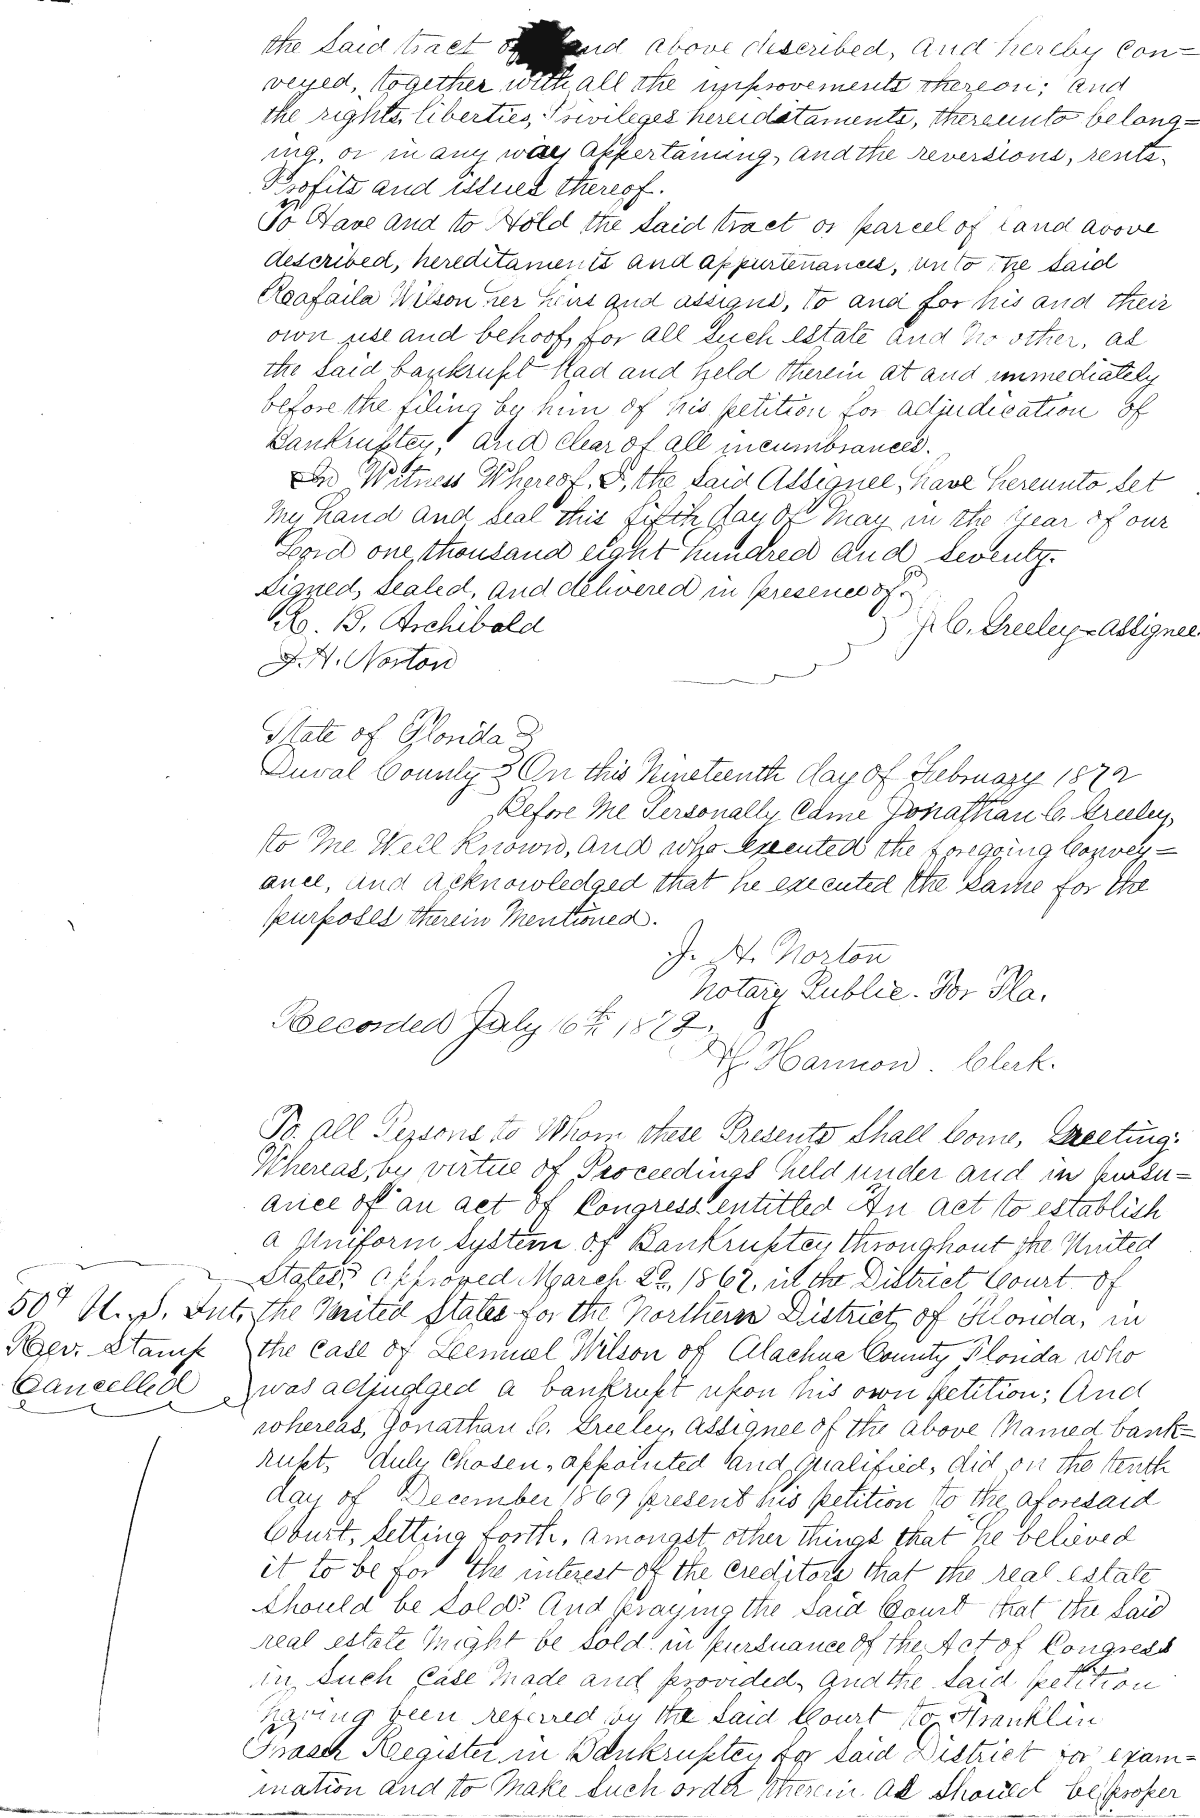 the said tract of land above described, and hereby con=
veyed, together with all the improvements thereon; and
the rights, liberties, Privileges hereiditaments, thereunto belong=
ing, or in any way appertaining, and the reversions, rents,
Profits and issues thereof.
To Have and to Hold the said tract or parcel of land above
described, hereditaments and appurtenances, unto the said
Reafaila Wilson her heirs and assigns, to and for his and their
own use and behoof, for all such estate and no other, as
the said bankrupt had and held therein at and immediately
before the filing by him of his petition for adjudication of
Bankruptcy, and clear of all incumbrances.
In Witness Whereof, I, the said Assignee, have hereunto set
my hand and seal this fifth day of May in the year of our
Lord one thousand eight hundred and seventy.
Signed, sealed, and delivered in presence of
R. B. Archibald
J. C. Greeley - Assignee.
J. H. Norton
State of Florida
Duval County On this Nineteenth day of February 1872
Before Me Personally Came Jonathan C. Greeley,
to Me Well Known, and who executed the foregoing Convey=
ance, and acknowledged that he executed the same for the
purposes therein Mentioned.
J. H. Norton
Notary Public. For Fla.
Recorded July 16th 1872.
Harmon. Clerk.
To all Persons to Whom these Presents Shall Come, Greeting:
Whereas, by virtue of Proceedings held under and in pursu=
ance of an act of Congress entitled "An act to establish
a Uniform System of Bankruptcy throughout the United
States" approved March 2nd, 1867, in the District Court of
the United States for the Northern District of Florida, in
the case of Leemuel Wilson of Alachua County Florida who
was adjudged a bankrupt upon his own petition; And
whereas, Jonathan C. Greeley, assignee of the above Named bank=
rupt, duly chosen, appointed and qualified, did on the tenth
day of December 1869 present his petition to the aforesaid
Court, setting forth, amongst other things that "he believed
it to be for the interest of the creditors that the real estate
should be sold" And praying the said Court that the said
real estate Might be sold in pursuance of the Act of Congress
in such case Made and provided, and the said petition
having been referred by the said Court to Franklin
Register in Bankruptcy for said District for exam=
ination and to Make such order therein as should be proper
50¢ U. S. Int.
Rev. Stamp
Cancelled